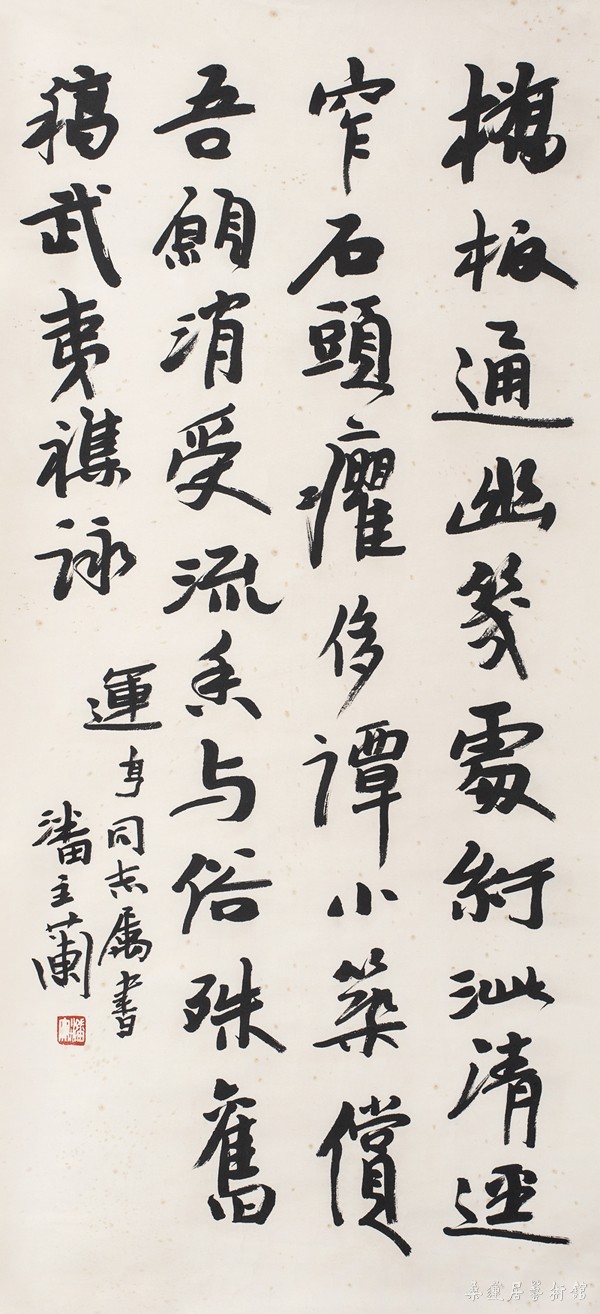 橋板通幽幾處紆泚清逕
窄石頭癯侈譚小築償
吾願消受流香与俗殊舊
稿武夷襍詠
運亨同志屬書
潘主蘭
桑蓮居藝術館